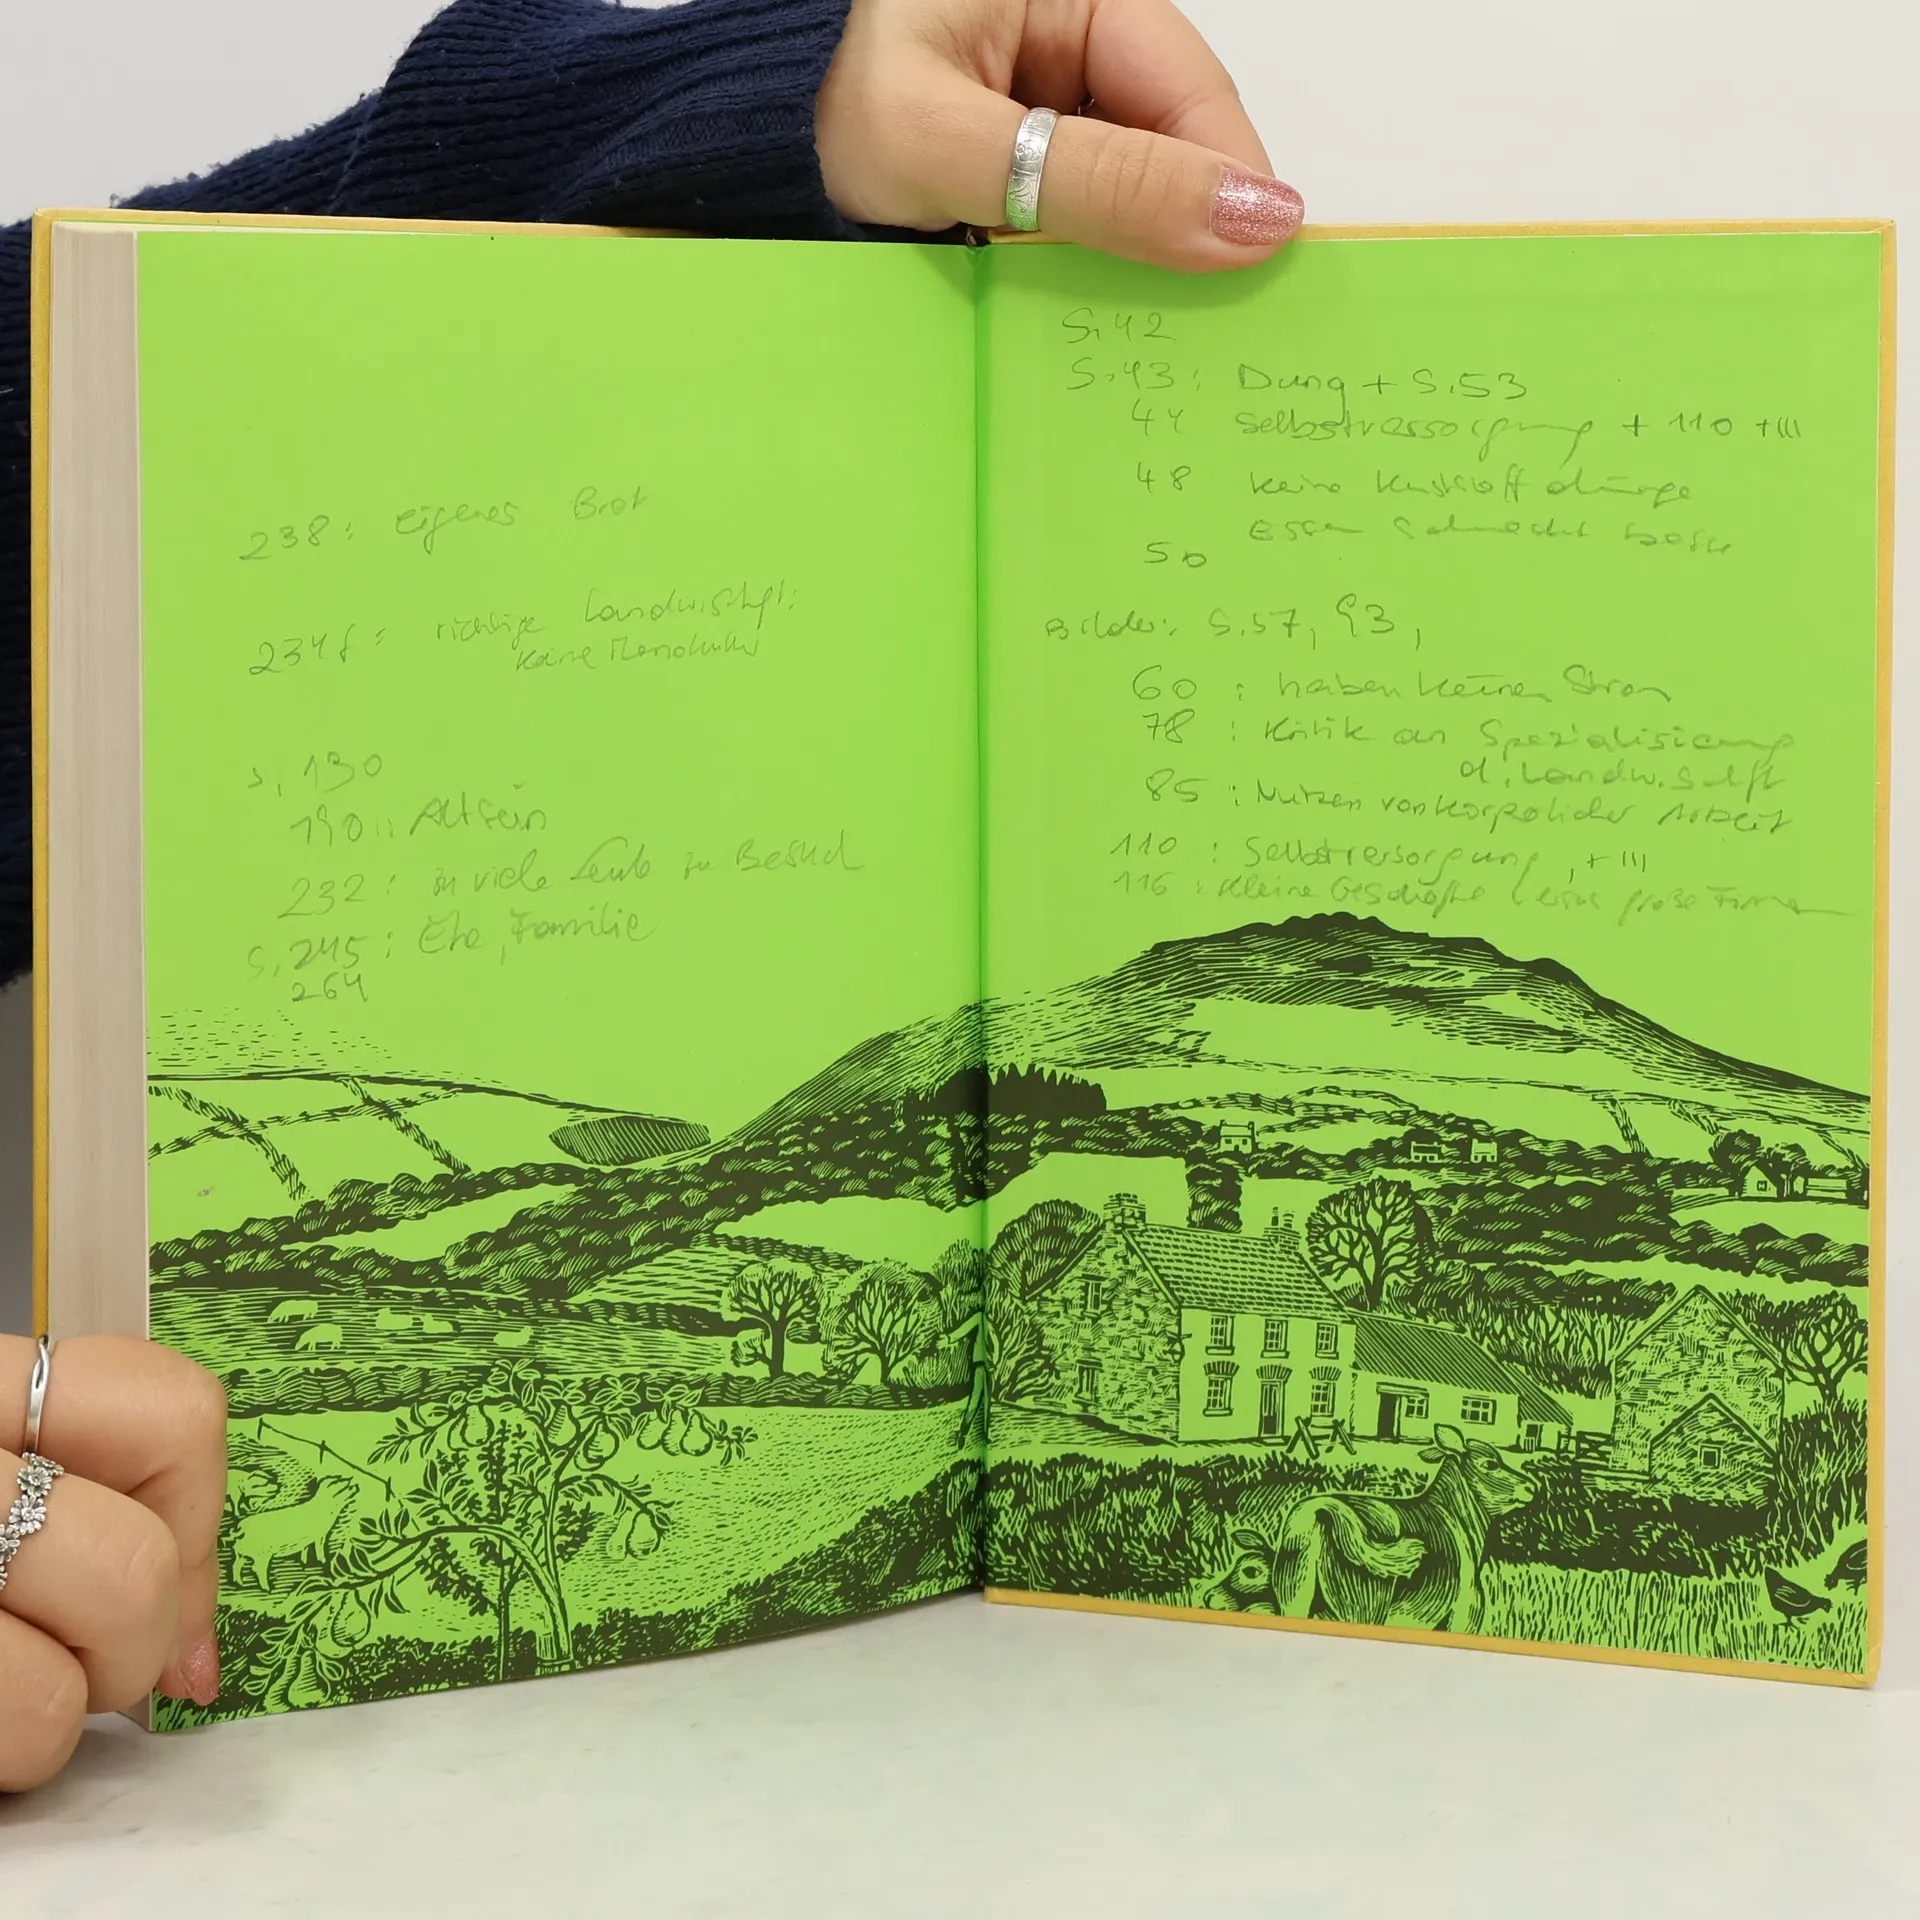 238: eigenes Brot
234f: richtige Landwirtschaft:
keine Monokultur
S. 130
190: Altsein
232: zu viele Leute zu Besuch
S. 245: Ehe, Familie
264
S. 42
S. 43: Dung + S. 53
44 Selbstversorgung + 110 + 111
48 keine Kunststoffdünger
Essen schmeckt besser
50
Bilder: S. 57, 93,
60: haben keinen Strom
78: Kritik an Spezialisierung
d. Landwirtschaft
85: Nutzen von körperlicher Arbeit
110: Selbstversorgung, + 111
116: kleine Geschäfte versus große Firmen